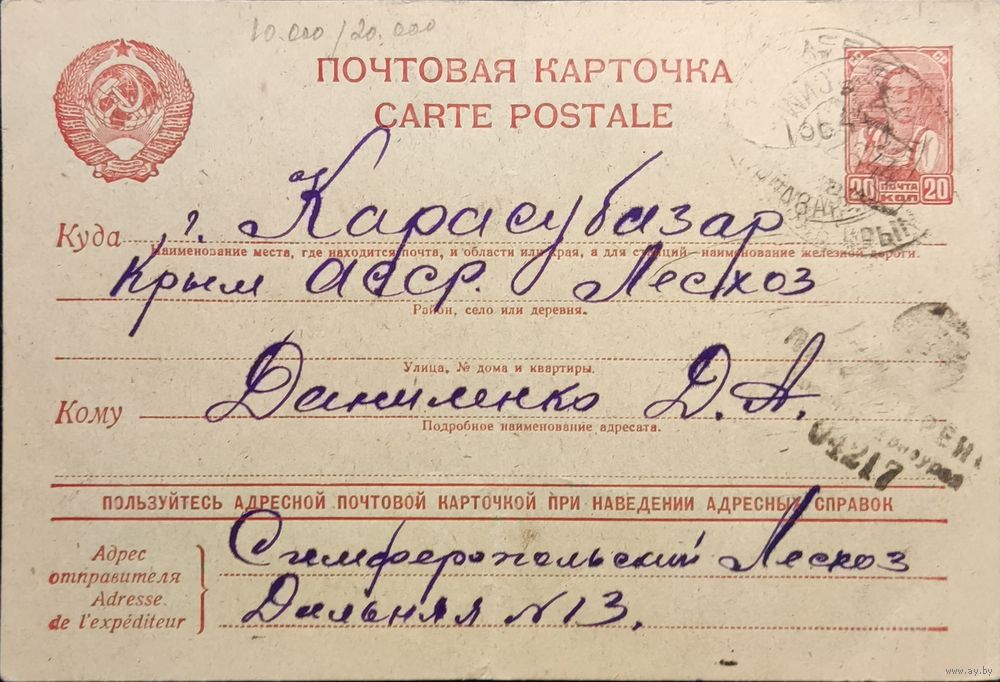 10.000/20.000
ПОЧТОВАЯ КАРТОЧКА
CARTE POSTALE
20 ПОЧТА 20
КОП
Куда г. Карасубазар
Наименование места, где находится почта, и области или края, а для станций—наименование железной дороги.
Крым АССР. Лесхоз
Район, село или деревня.
Улица, № дома и квартиры.
Кому Даниленко Д. А.
Подробное наименование адресата.
04217
ПОЛЬЗУЙТЕСЬ АДРЕСНОЙ ПОЧТОВОЙ КАРТОЧКОЙ ПРИ НАВЕДЕНИИ АДРЕСНЫХ СПРАВОК
Адрес отправителя
Adresse de l'expéditeur
Симферопольский Лесхоз
Дальняя N 13.
www.ay.by